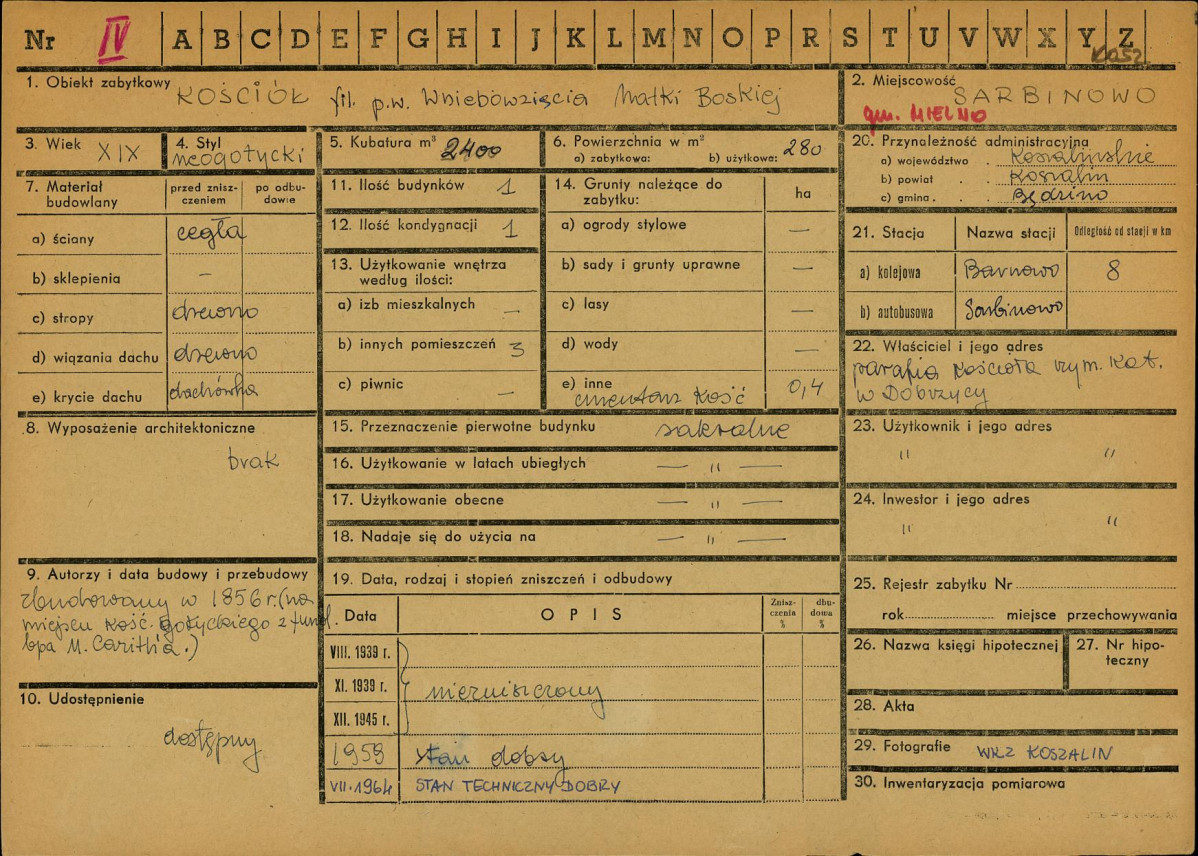 Nr IV A B C D E F G H I J K L M N O P R S T U V W X Y Z
1. Obiekt zabytkowy KOŚCIÓŁ fil. p.w. Wniebowzięcia Matki Boskiej
2. Miejscowość SARBINOWO
gm. MIELNO
3. Wiek XIX
4. Styl neogotycki
5. Kubatura m³ 2400
6. Powierzchnia w m²
a) zabytkowa: b) użytkowa: 280
20. Przynależność administracyjna
a) województwo . Koszalińskie
b) powiat . . Koszalin
c) gmina . . Będzino
7. Materiał budowlany
przed zniszczeniem
po odbudowie
a) ściany cegła
b) sklepienia –
c) stropy drewno
d) wiązania dachu drewno
e) krycie dachu dachówka
11. Ilość budynków 1
12. Ilość kondygnacji 1
13. Użytkowanie wnętrza
według ilości:
a) izb mieszkalnych –
b) innych pomieszczeń 3
c) piwnic –
14. Grunty należące do
zabytku: ha
a) ogrody stylowe –
b) sady i grunty uprawne –
c) lasy –
d) wody –
e) inne
cmentarz kość 0,4
21. Stacja Nazwa stacji Odległość od stacji w km
a) kolejowa 8
b) autobusowa Sarbinowo
22. Właściciel i jego adres
parafia Kościoła rzym. Kat.
w Dobrzycy
8. Wyposażenie architektoniczne
brak
15. Przeznaczenie pierwotne budynku sakralne
16. Użytkowanie w latach ubiegłych — " —
17. Użytkowanie obecne — " —
18. Nadaje się do użycia na — " —
23. Użytkownik i jego adres
" "
24. Inwestor i jego adres
" "
9. Autorzy i data budowy i przebudowy
zbudowany w 1856 r. (na
miejscu kość. gotyckiego z fund.
bpa M. )
10. Udostępnienie
dostępny
19. Data, rodzaj i stopień zniszczeń i odbudowy
Data OPIS Zniszczenia % dbudowa %
VIII. 1939 r.
XI. 1939 r. niezniszczony
XII. 1945 r.
1959 stan dobry
VII.1964 STAN TECHNICZNY DOBRY
25. Rejestr zabytku Nr
rok miejsce przechowywania
26. Nazwa księgi hipotecznej
27. Nr hipoteczny
28. Akta
29. Fotografie WKZ KOSZALIN
30. Inwentaryzacja pomiarowa